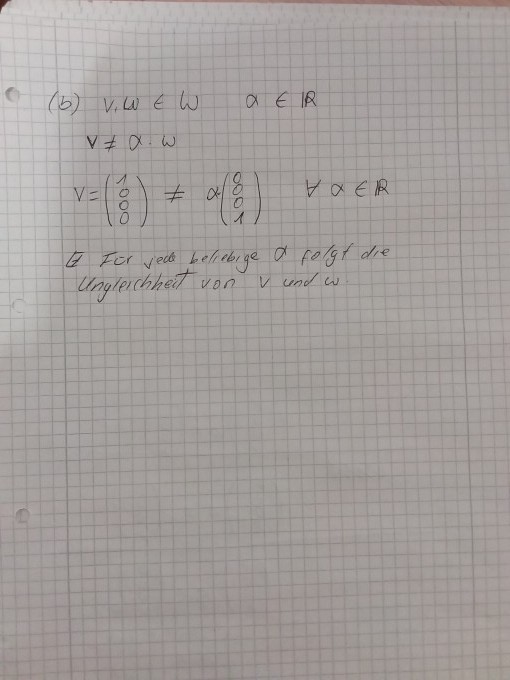 (b) v,w ∈ W α ∈ ℝ
v ≠ α · w
v = (1 0 0 0) ≠ α (0 0 0 1) ∀ α ∈ ℝ
Für jede beliebige α folgt die
Ungleichheit von v und w.